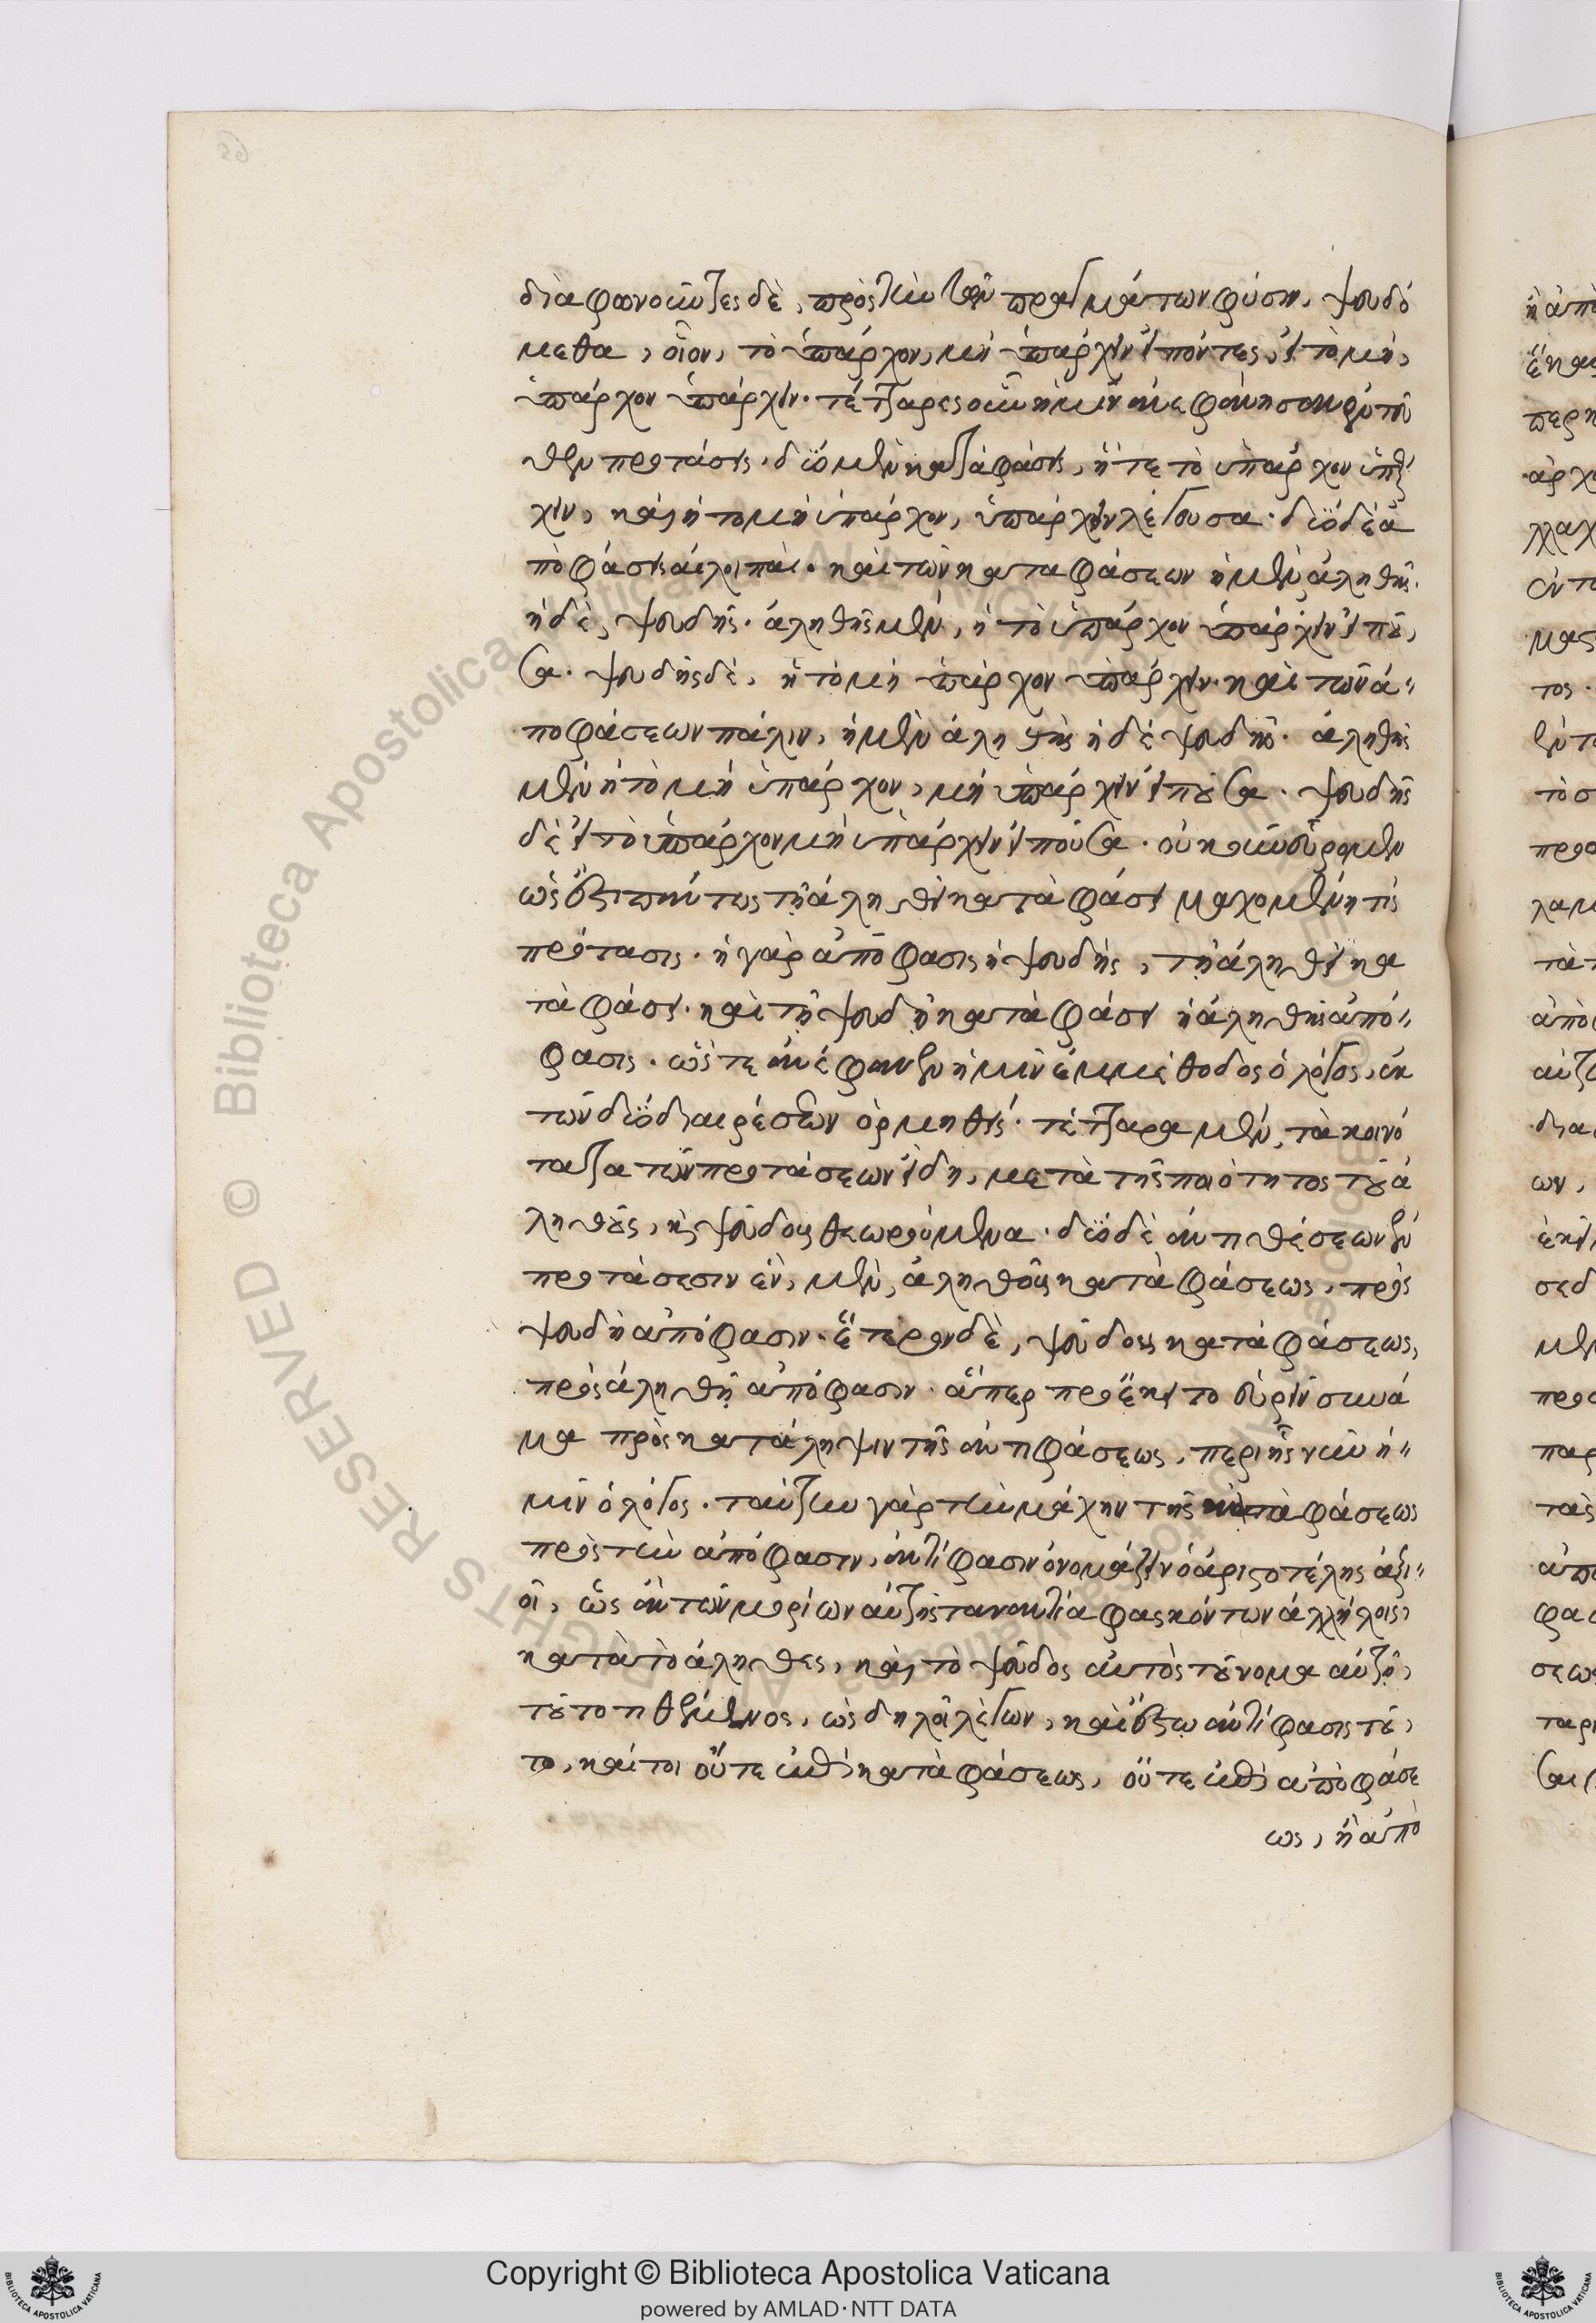 διαφωνοῦντες δὲ, πρὸς τὴν τῶν πραγμάτων φύσιν, ψευδό
μεθα, οἷον, τὸ ὑπάρχον, μὴ ὑπάρχειν εἰπόντες, εἰ τὸ μὴ,
ὑπάρχον ὑπάρχειν. τέτταρες οὖν ἡμῖν ἀνεφάνησαν ἐντεῦ
θεν προτάσεις. δύο μὲν καταφάσεις, ἥ τε τὸ ὑπάρχον ὑπάρ
χειν, καὶ ἡ το μὴ ὑπάρχον, ὑπάρχειν λέγουσα. δύο δὲ ἀ
ποφάσεις αἱ λοιπαί. καὶ τῶν καταφάσεων ἡ μὲν ἀληθής.
ἡ δὲ, ψευδής. ἀληθὴς μὲν, ἡ τὸ ὑπάρχον ὑπάρχειν εἰποῦ,
σα. ψευδὴς δὲ, ἡ τὸ μὴ ὑπάρχον ὑπάρχειν. καὶ τῶν ἀ-
ποφάσεων πάλιν, ἡ μὲν ἀληθὴς ἡ δὲ ψευδής. ἀληθὴς
μὲν ἡ τὸ μὴ ὑπάρχον, μὴ ὑπάρχειν εἰποῦσα. ψευδὴς
δὲ εἰ τὸ ὑπάρχον μὴ ὑπάρχειν εἰποῦσα. οὐκοῦν εὕρομεν
ὡς ὄντι παντως τῇ ἀληθεῖ καταφάσει μαχομένη τίς
πρότασις. ἡ γὰρ ἀπόφασις ἡ ψευδής, τῇ ἀληθεῖ κα
ταφάσει. καὶ τῇ ψευδῆ καταφάσει ἡ ἀληθὴς ἀπό-
φασις. ὥστε ἀνέφανεν ἡμῖν ἐμμέθοδος ὁ λόγος, ἐκ
τῶν δύο διαιρέσεων ὁρμηθείς. τέτταρα μὲν, τὰ κοινό
τατα τῶν προτάσεων εἴδη, μετὰ τῆς ποιότητος τοῦ ἀ
ληθοῦς, καὶ ψεύδους θεωρούμενα. δύο δὲ ἀντιθέσεων ἐν
προτάσεσιν ἓν, μὲν, ἀληθοῦς καταφάσεως, πρὸς
ψευδῆ ἀπόφασιν. ἕτερον δὲ, ψεύδους καταφάσεως,
πρὸς ἀληθῆ ἀπόφασιν. ἅπερ προὔκειτο εὑρεῖν συνά
μα πρὸς κατάληψιν τῆς ἀντιφάσεως, περὶ ἧς νῦν ἡ-
μῖν ὁ λόγος. ταύτην γὰρ τὴν μάχην τῆς καταφάσεως
πρὸς τὴν ἀπόφασιν, ἀντίφασιν ὀνομάζειν ὁ ἀριστοτέλης ἀξι-
οῖ, ὡς ἂν τῶν μορίων αὐτῆς παναντία φασκόντων ἀλλήλοις,
κατὰ τὸ ἀληθὲς, καὶ τὸ ψεῦδος αὐτὸς τοὔνομα αὐτῷ,
τοῦτο τιθέμενος, ὡς δηλοῖ λέγων, καὶ ἔστω ἀντίφασις τοῦ,
το, καίτοι οὔτε ἐπὶ καταφάσεως, οὔτε ἐπὶ ἀποφάσε
ως, ἢ ἀπὸ